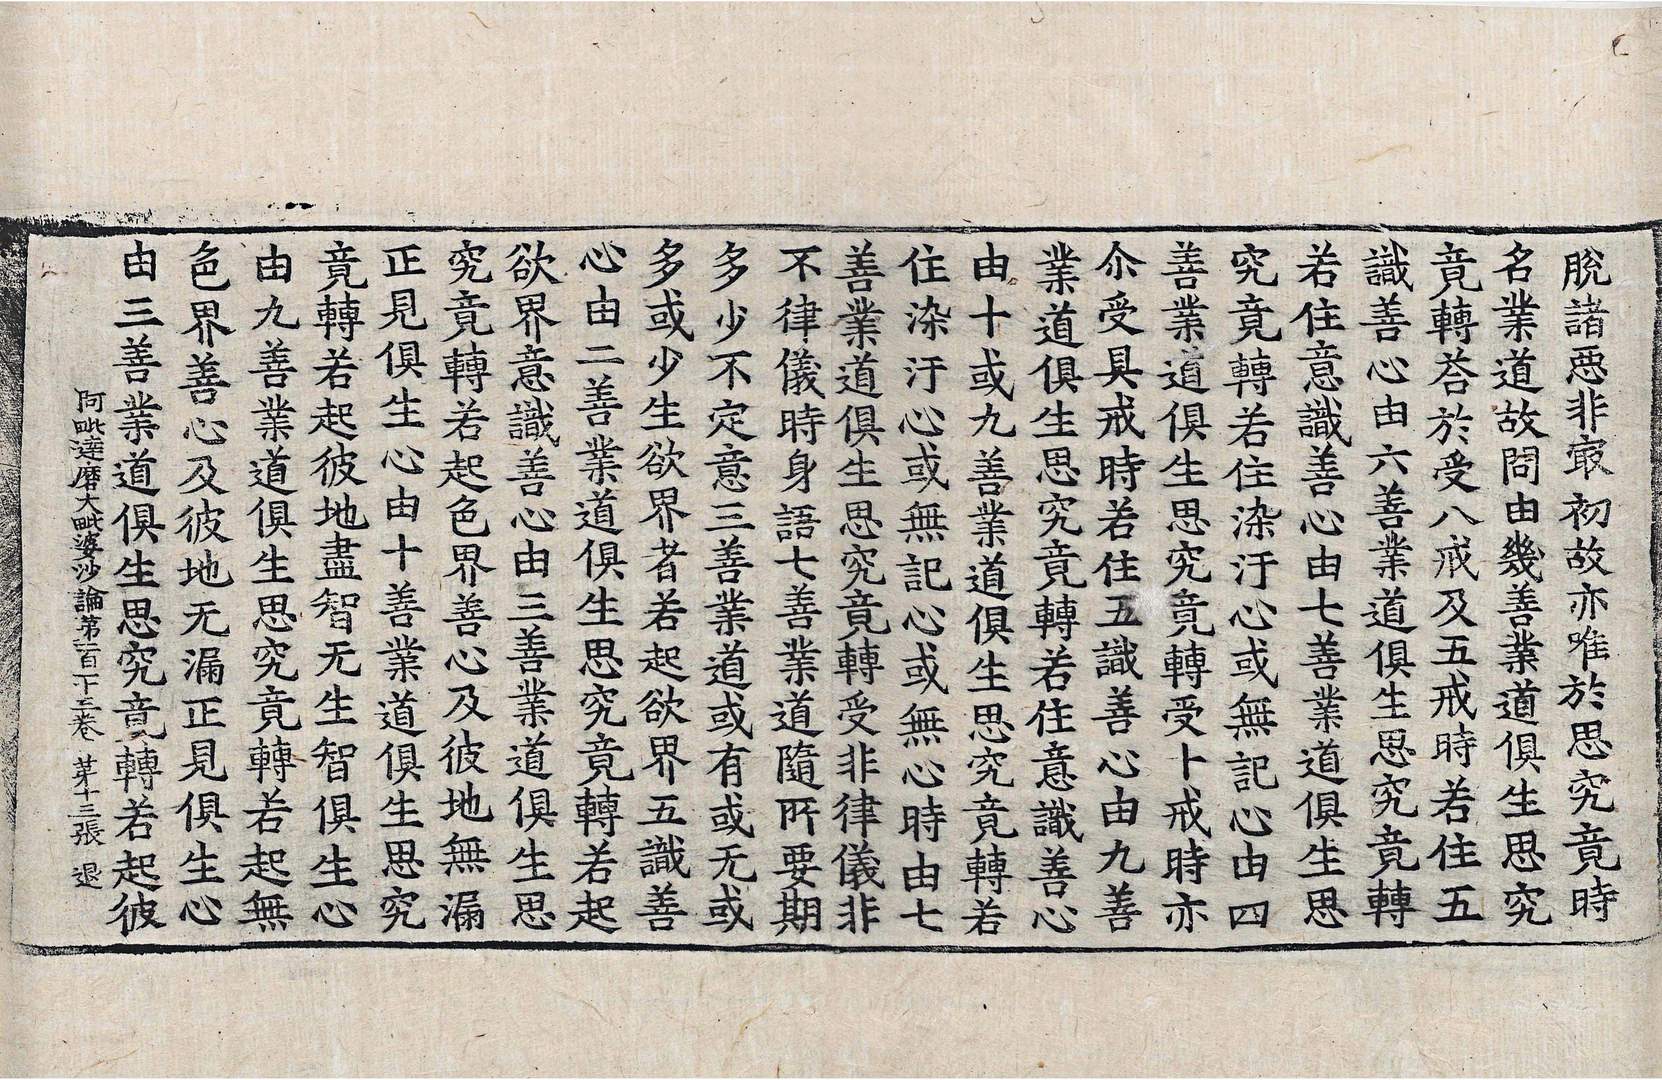 脫諸惡非㝡初故亦唯於思究竟時
名業道故問由幾善業道俱生思究
竟轉荅於受八戒及五戒時若住五
識善心由六善業道俱生思究竟轉
若住意識善心由七善業道俱生思
究竟轉若住染汙心或無記心由四
善業道俱生思究竟轉受十戒時亦
尒受具戒時若住五識善心由九善
業道俱生思究竟轉若住意識善心
由十或九善業道俱生思究竟轉若
住染汙心或無記心或無心時由七
善業道俱生思究竟轉受非律儀非
不律儀時身語七善業道隨所要期
多少不定意三善業道或有或无或
多或少生欲界者若起欲界五識善
心由二善業道俱生思究竟轉若起
欲界意識善心由三善業道俱生思
究竟轉若起色界善心及彼地無漏
正見俱生心由十善業道俱生思究
竟轉若起彼地盡智无生智俱生心
由九善業道俱生思究竟轉若起無
色界善心及彼地无漏正見俱生心
由三善業道俱生思究竟轉若起彼
阿毗達磨大毗婆沙論第一百十三卷 苐十三張 退